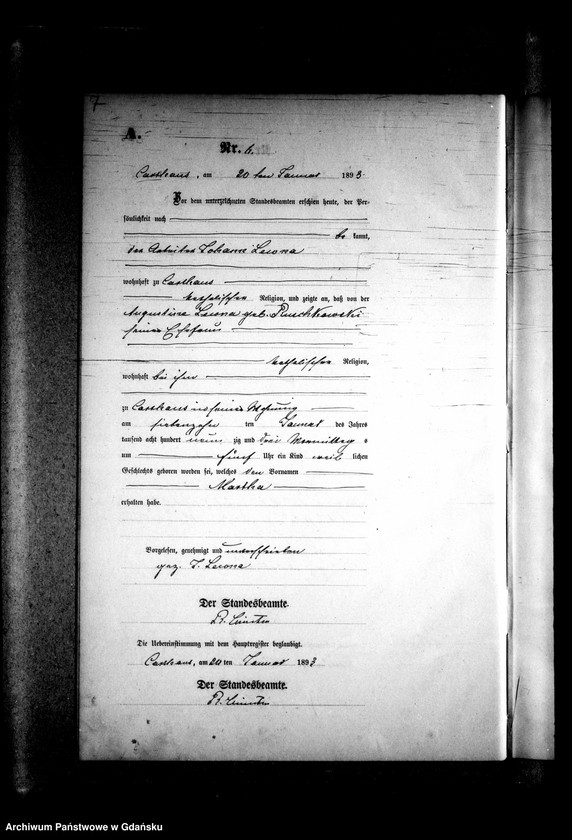 7
A.
Nr. 6.
Carthaus, am 20 ten Januar 1893.
Vor dem unterzeichneten Standesbeamten erschien heute, der Per-
sönlichkeit nach
be kannt,
der Arbeiter Johann
wohnhaft zu Carthaus
katholischer Religion, und zeigte an, daß von der
Augustine geb. Ruschkowski
seiner Ehefrau
katholischer Religion,
wohnhaft bei ihm
zu Carthaus in seiner Wohnung
am siebenzehn ten Januar des Jahres
tausend acht hundert neun zig und drei Vormittag s
um fünf Uhr ein Kind weib lichen
Geschlechts geboren worden sei, welches den Vornamen
Martha
erhalten habe.
Vorgelesen, genehmigt und unterschrieben
gez. J.
Der Standesbeamte.
Die Uebereinstimmung mit dem Hauptregister beglaubigt.
Carthaus, am 20 ten Januar 1893
Der Standesbeamte.
Archiwum Państwowe w Gdańsku